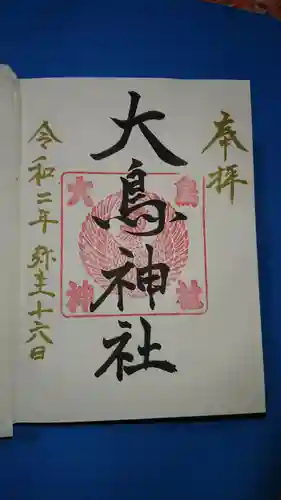 奉拝
大鳥神社
大鳥
神社
令和二年弥生十六日